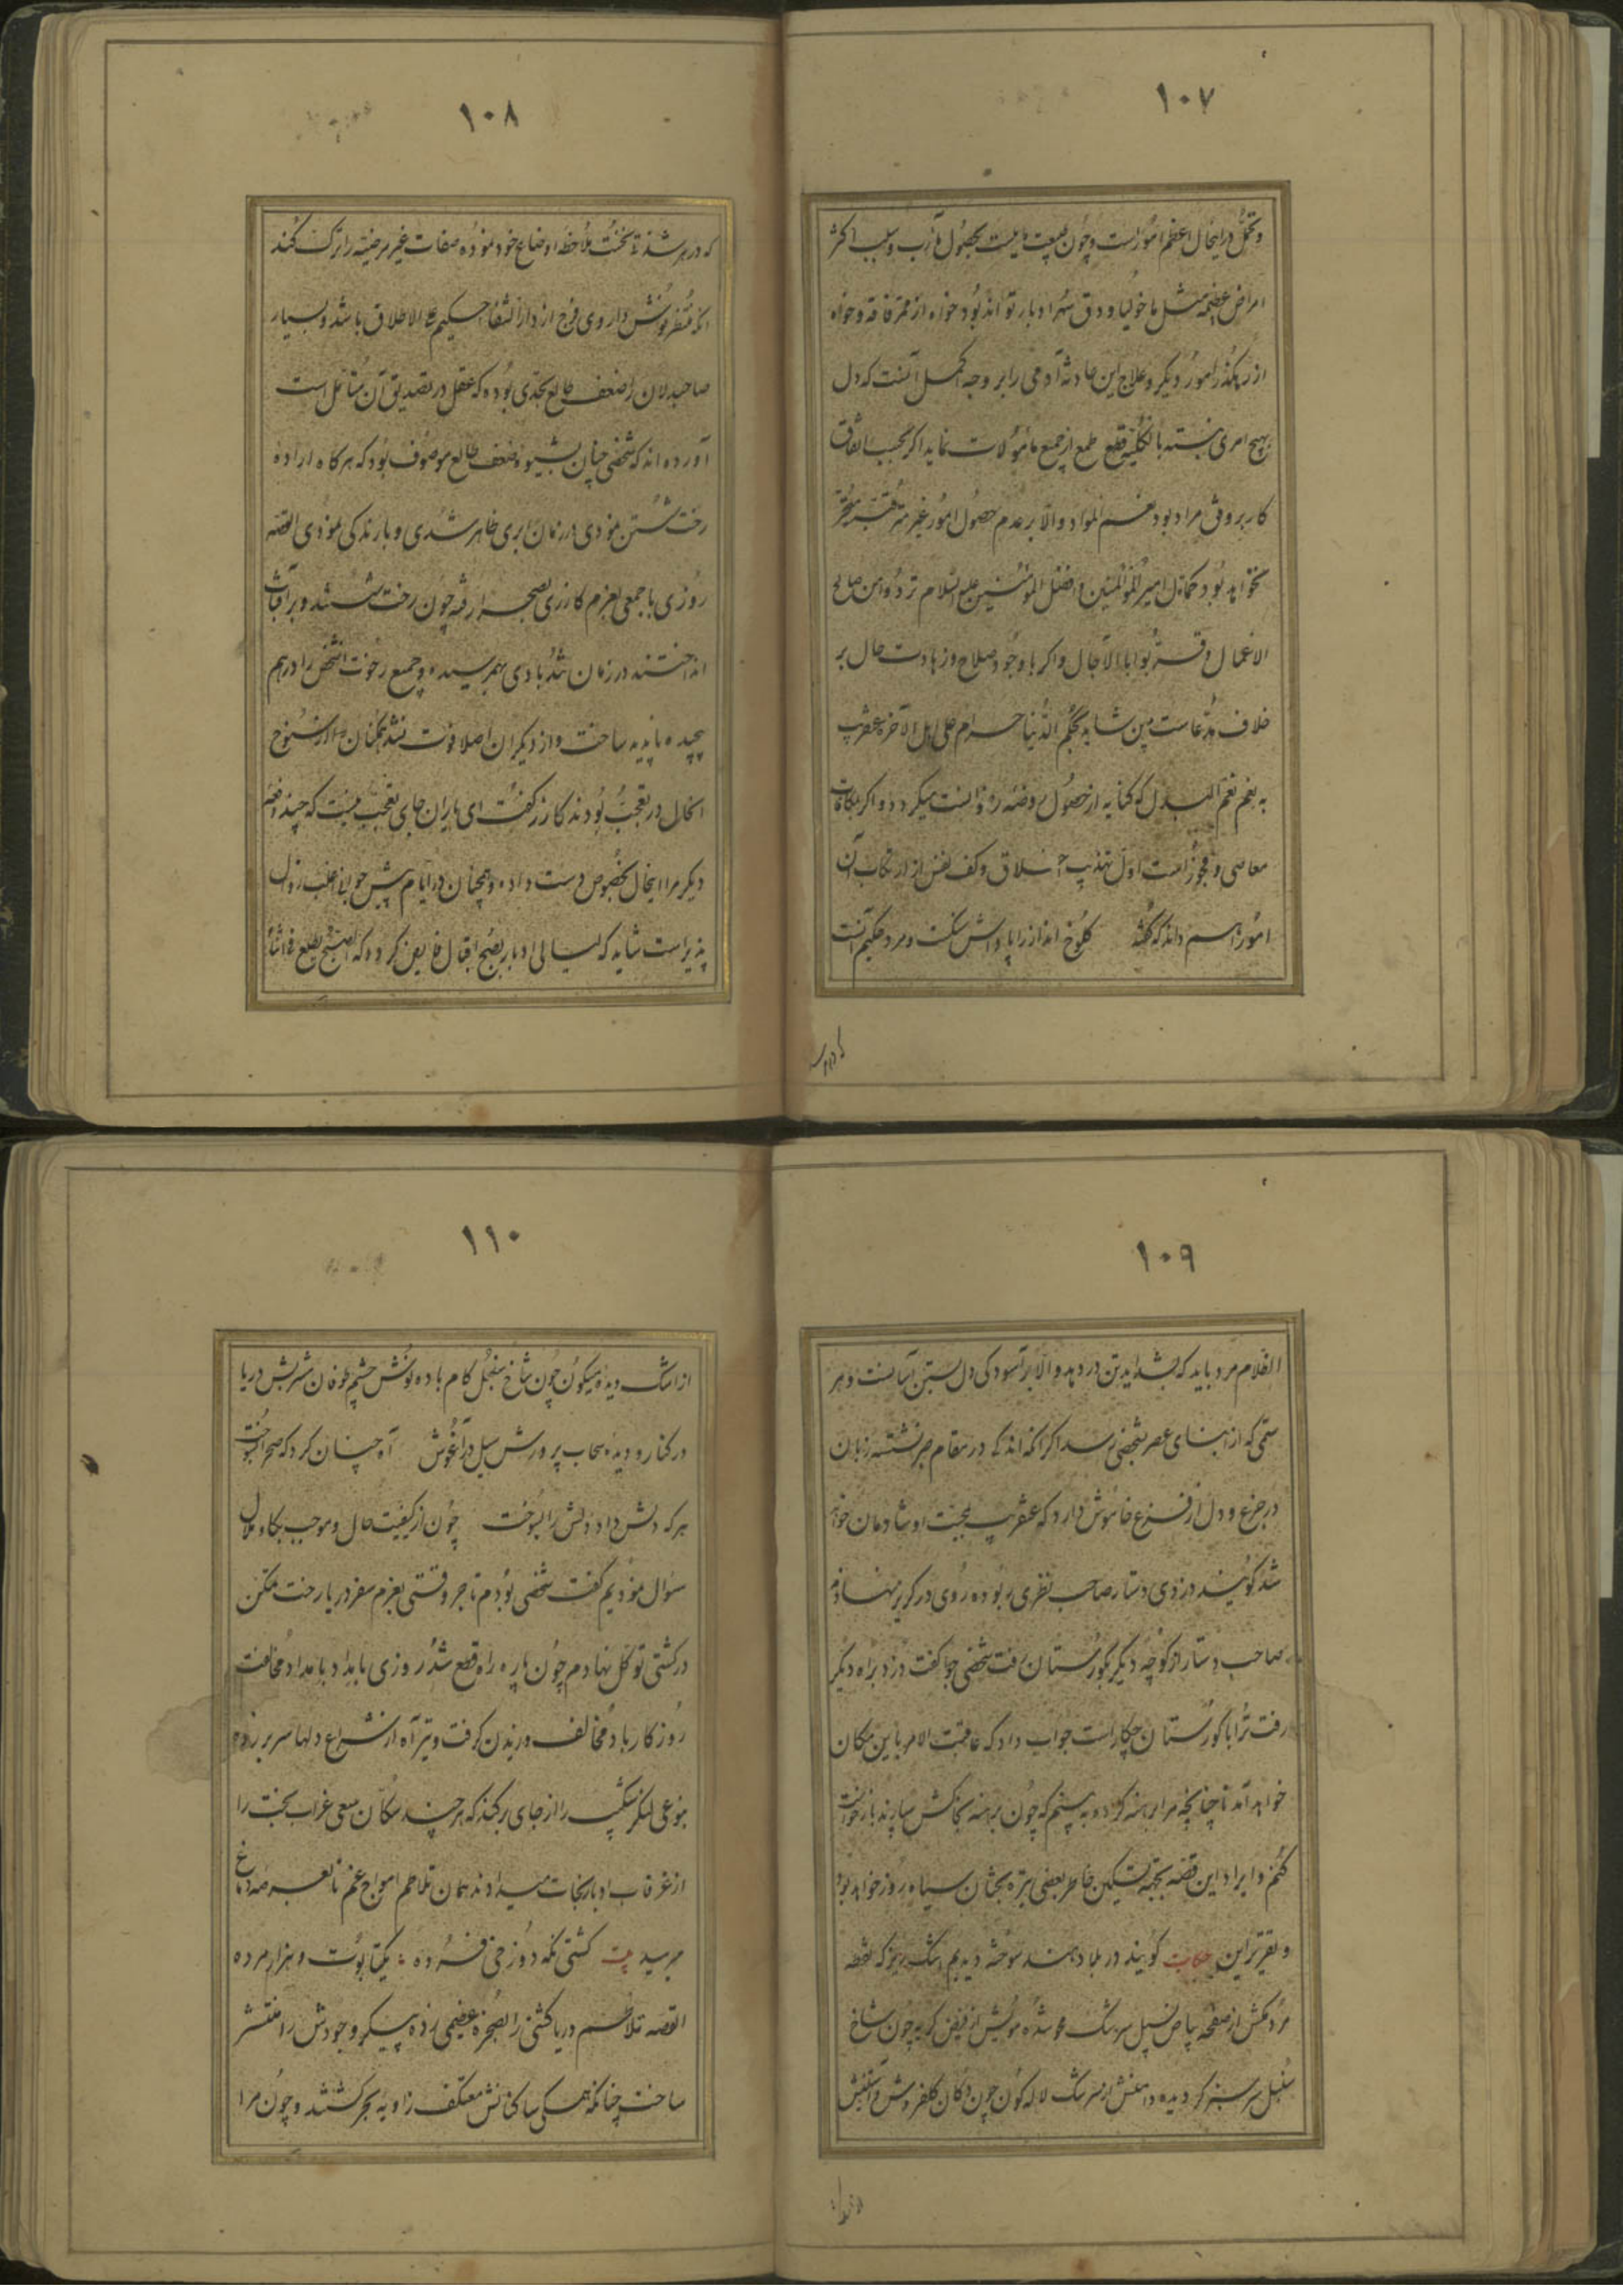 ۱۰۷
و تحمل در اینحال اعظم امور است و چون طبیعت مایلست بحصول مآرب و سبب اکثر
امراض عظیمه مثل ماخولیا و دق سهر ادبار تواند بود خواه از ممر فاقه و خواه
از رهگذر امور دیگر و علاج این حادثه آدمی را بر وجه اکمل آنست که دل
بهیچ امری نبسته بالکلیه قطع طمع از جمیع مامولات نماید اگر بحسب اتفاق
کار بر وفق مراد بود نعم المراد والا بر عدم حصول امور غیر مترقبه متحیر
نخواهد بود کما قال امیر المومنین و افضل علیه السلام
الاعمال و اگر با وجود صلاح و زهادت حال بر
خلاف مدعاست پس شاید بحکم الدنیا حرام علی اهل الآخرة عنقریب
به نعم البدل که کنایه از حصول روضه رضوانست میگردد و اگر بمکافات
معاصی و فجور است اول تهذیب اخلاق و کف نفس از ارتکاب آن
امور اهم داند که گفته‌اند کلوخ انداز را پاداش سنگست و مرد حکیم آنست
که در هر
۱۰۸
که در هر شدتی نخست ملاحظه اوضاع خود نموده صفات غیر مرضیه را ترک کند
آنگه منتظر نوش داروی فرج از دار الشفا حکیم علی الاطلاق باشد و بسیار
صاحبدلان را ضعف طالع بحدی بوده که عقل در تصدیق آن متامل است
آورده‌اند که شخصی چنان بشیوه ضعف طالع موصوف بود که هرگاه اراده
رخت شستن نمودی در زمان ابری ظاهر شدی و بارندگی نمودی القصه
روزی با جمعی بعزم کازری بصحرا رفته چون رخت شستند و بر آفتاب
انداختند در زمان تند بادی بهم رسیده و جمیع رخوت آنشخص را درهم
پیچیده ناپدید ساخت و از دیگران اصلا فوت نشد همگنان از سنوح
آنحال در تعجب بودند کازر گفت ای یاران جای تعجب نیست که چند دفعه
دیگر مرا اینحال بخصوص دست داده و همچنان در ایام پیش جوابی زوال
پذیر است شاید که لیالی ادبار بصبح اقبال فایض گردد که الصبح یطلع فی اثناء
۱۰۹
الظلام مرد باید که بشداید تن در دهد والا بر آسودگی دل بستن آسانست و هر
ستمی که از ابنای عصر بشخصی رسد اگر آنکه اندک در مقام صبر نشسته زبان
در جزع و دل از فزع خاموش دارد که عنقریب بحیث او شادمان خواهد
شد گویند دزدی دستار صاحب نظری ربوده روی در گریز نهاد
صاحب دستار از کوچه دیگر بگورستان رفت شخصی گفت دزد براه دیگر
رفت ترا با گورستان چکار است جواب داد که عاقبت الامر باین مکان
خواهد آمد تا چنانچه مرا برهنه کرده به بینم که چون برهنه بخاکش سپارند بازخواست
کنم و ایراد این قصه بجهة تسکین خاطر بعضی تیره بختان سیاه روز خواهد بود
و بقریر این حکایت گویند در بلاد هند سوخته دیدیم اشک ریز که نقطه
مردمکش از صفحه بیاض بسیل سرشک محو شده مویش از فیض گریه چون شاخ
سنبل سر سبز گردیده دامنش از سرشک لاله گون چون دکان گلفروش و آستینش
از اشک
۱۱۰
از اشک دیده میگون چون شاخ سنبل کام باده نوش چشم طوفان سرشتش دریا
در کنار و دیده سحاب پرورش سیل در آغوش آه چنان کرد که صحرا بسوخت
هر که دلش داد دلش را بسوخت چون از کیفیت حال و موجب بکا و ملال
سوال نمودیم گفت شخصی بودم تاجر وقتی بعزم سفر دریا رخت تمکن
در کشتی توکل نهادم چون پاره راه قطع شد روزی بامداد مخالفت
روزگار باد مخالف وزیدن گرفت و تیر آه از شراع دلها سر بر زده
بنوعی لنگر شکیب را از جای برکند که هر چند سکان سعی غراب بخت را
از غرقاب ادبار نجات میدادند همان تلاطم امواج غم تا نعره دماغ
میرسید بیت کشتی نکه دوزخی فسرده یکتا بوت و هزار مرده
القصه تلاطم دریا کشتی را بصخره عظیمی زده پیکر وجودش را منتشر
ساخت چنانکه همگی ساکنانش معتکف زاویه بحر گشتند و چون مرا